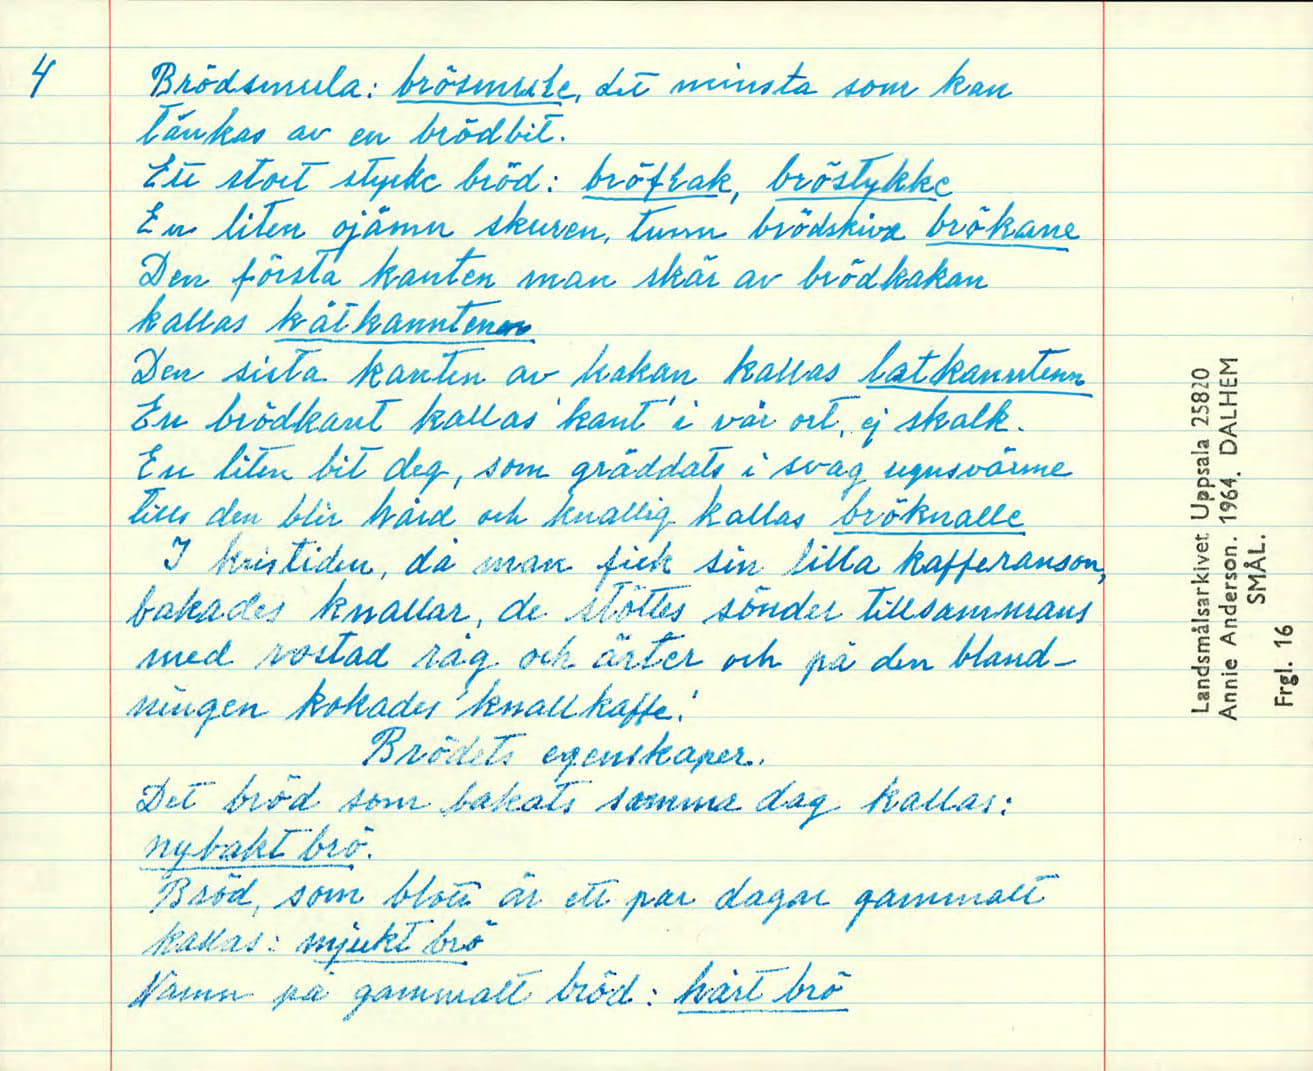 4
Brödsmula: brösmule, det minsta som kan
tänkas av en brödbit.
Ett stort stycke bröd: bröflak, bröstykke
En liten ojämn skuren, tunn brödskiva brökane
Den första kanten man skär av brödkakan
kallas kåtkanntenn
Den sista kanten av kakan kallas latkanntenn
En brödkant kallas 'kant' i vår ort, ej skalk.
En liten bit deg, som gräddats i svag ugnsvärme
tills den blir hård och knallig kallas bröknalle
I kristiden, då man fick sin lilla kafferanson,
bakades knallar, de stöttes sönder tillsammans
med rostad råg och ärter och på den bland-
ningen kokades 'knallkaffe'.
Brödets egenskaper.
Det bröd som bakats samma dag kallas:
nybakt brö.
Bröd, som blott är ett par dagar gammalt
kallas: mjukt brö
Namn på gammalt bröd: hårt brö
Landsmålsarkivet Uppsala 25820
Annie Anderson. 1964. DALHEM
SMÅL.
Frgl. 16